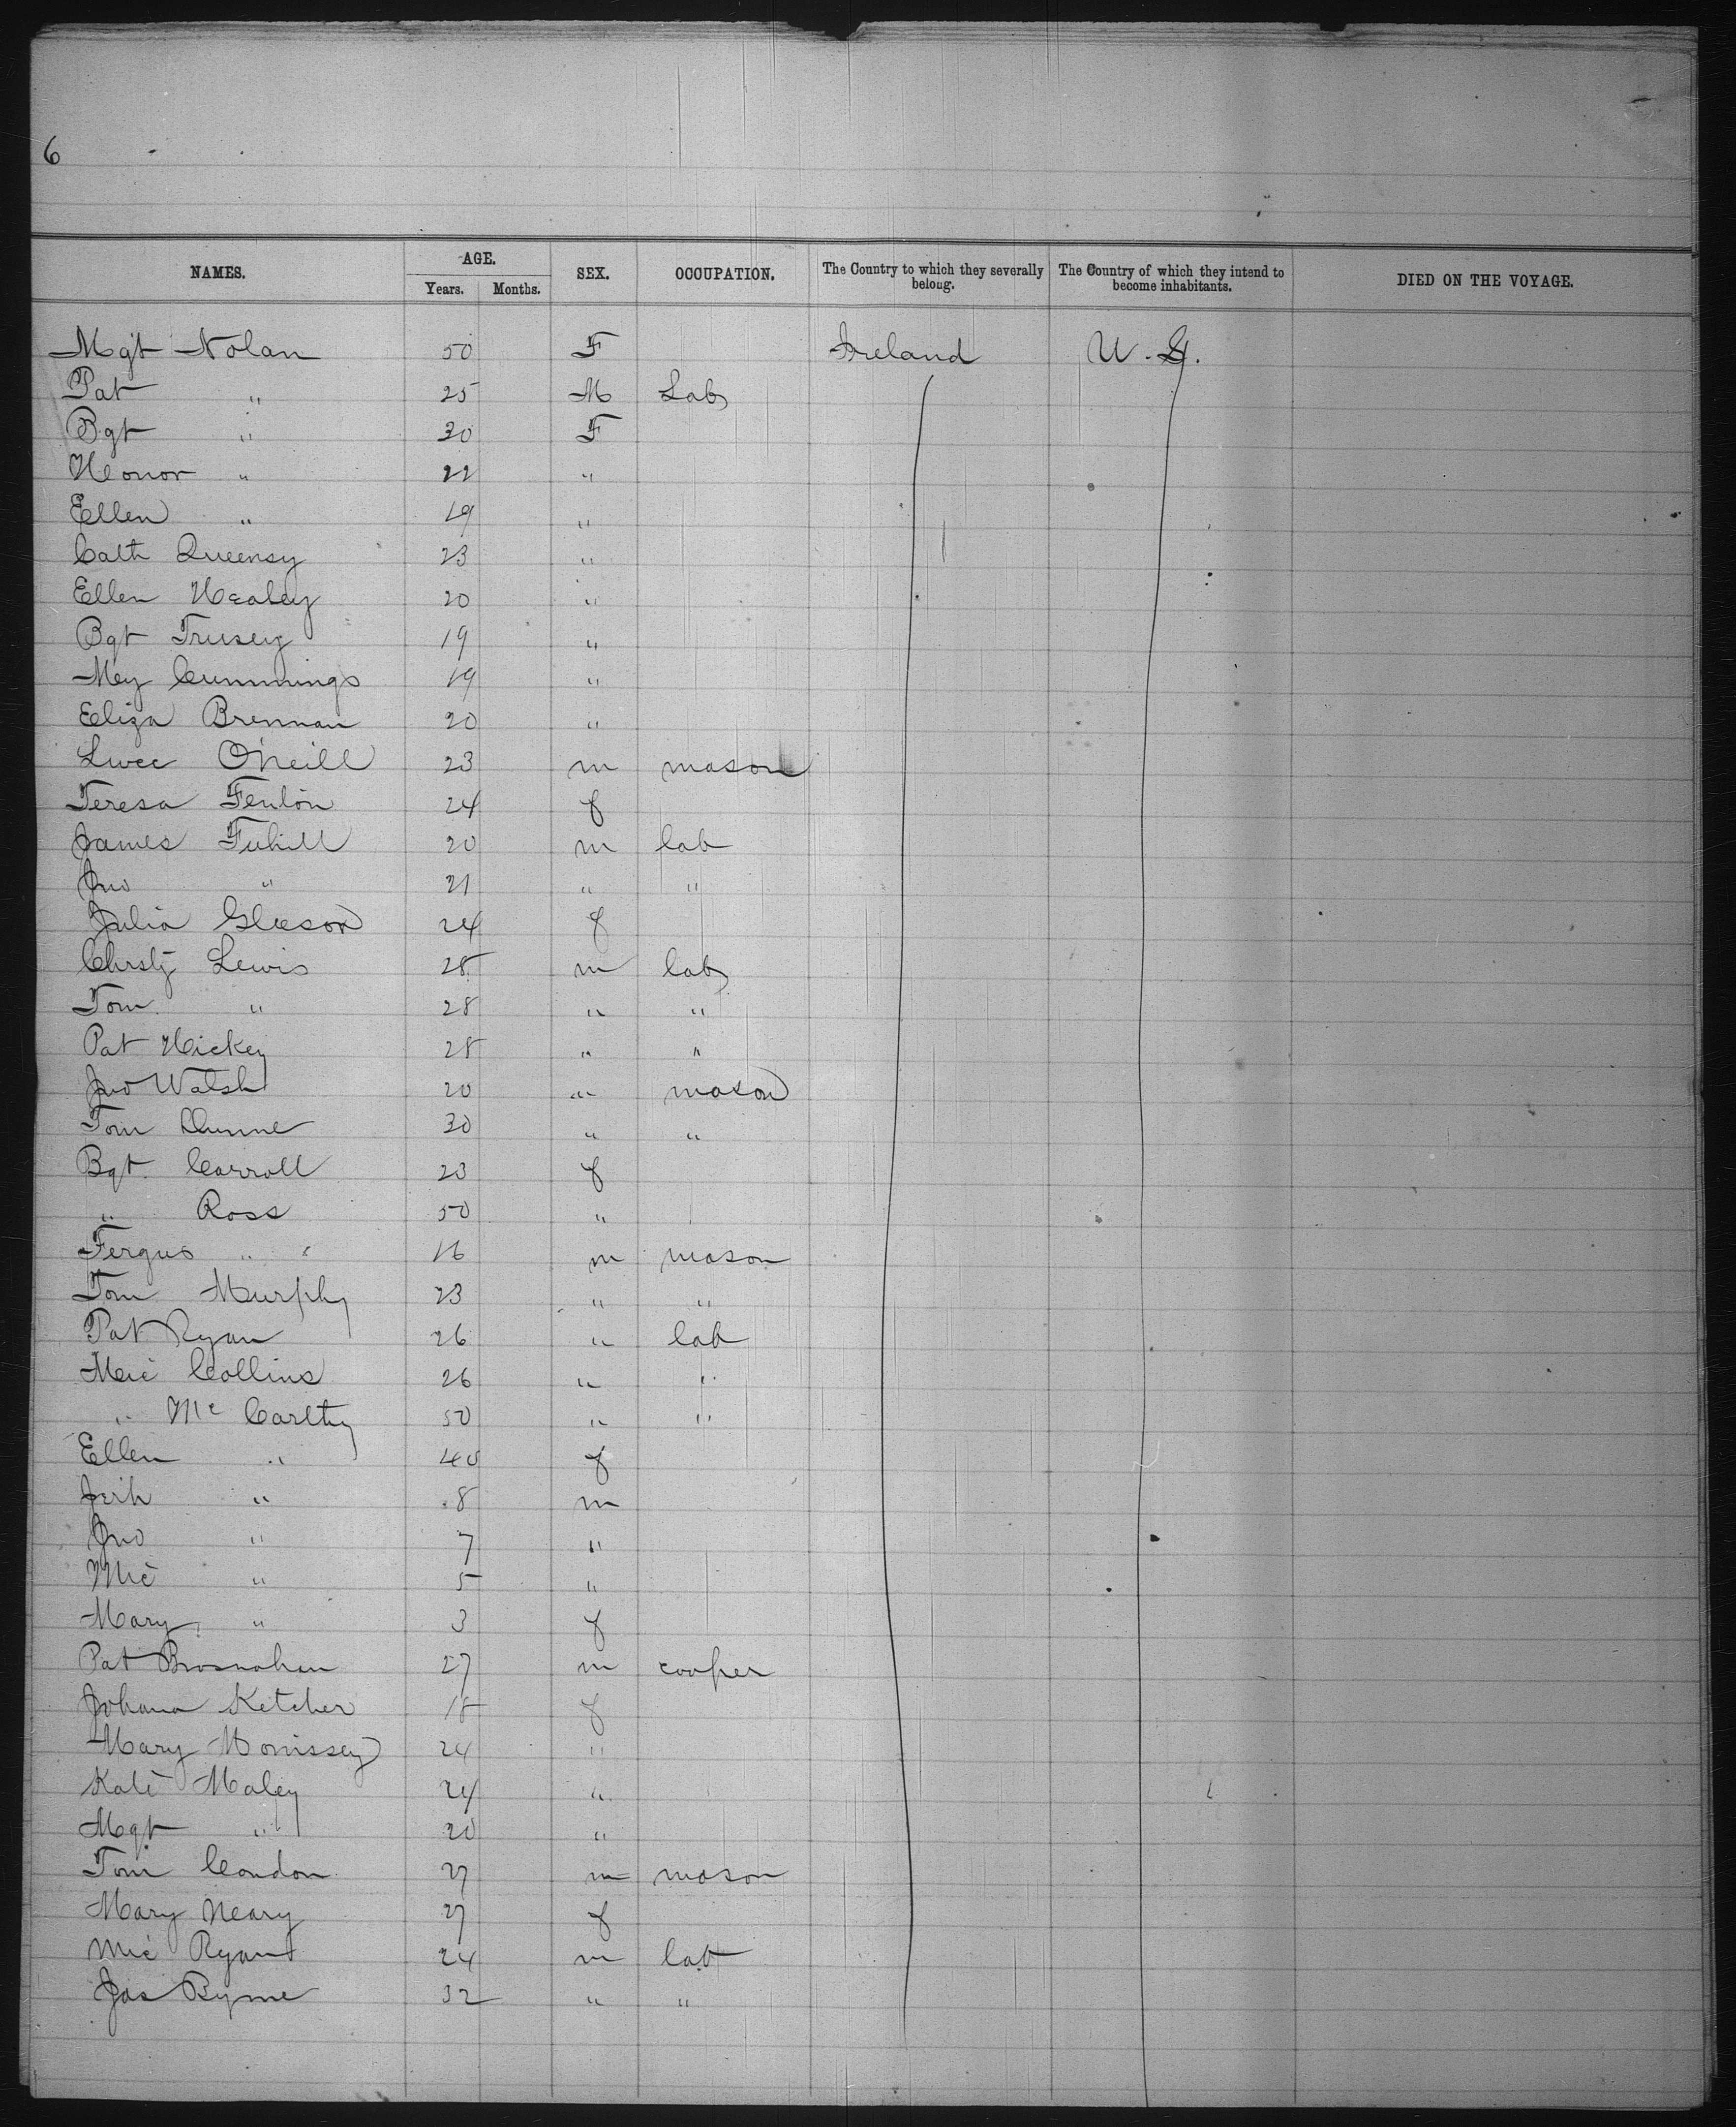 6
NAMES. AGE. Years. Months. SEX. OCCUPATION. The Country to which they severally belong. The Country of which they intend to become inhabitants. DIED ON THE VOYAGE.
Mgt Nolan 50 F Ireland U.S.
Pat " 25 M Lab
Bgt " 30 F
Honor " 22 "
Ellen " 19 "
Cath Queensy 23 "
Ellen Healey 20 "
Bgt 19 "
Mey Cummings 19 "
Eliza Brennan 20 "
O'Neill 23 m mason
Teresa Fenlon 24 f
James Tuhill 20 m lab
Jno " 21 " "
Julia Gleeson 24 f
Christy Lewis 25 m lab
Tom " 28 " "
Pat Hickey 25 " "
Jno Walsh 20 " mason
Tom Dunne 30 " "
Bgt. Carroll 23 f
" Ross 50 "
Fergus " " 16 m mason
Tom Murphy 23 " "
Pat Ryan 26 " lab
Mic Collins 26 " "
" Mc Carthy 50 " "
Ellen " 40 f
Jerh " 8 m
Jno " 7 "
Mic " 5 "
Mary " 3 f
Pat Brosnahan 27 m cooper
Johana Ketcher 18 f
Mary Morrissey 24 "
Kate Maley 24 "
Mgt " 20 "
Tom Condon 27 m mason
Mary Neary 27 f
Mic Ryan 24 m lab
Jas Byrne 32 " "